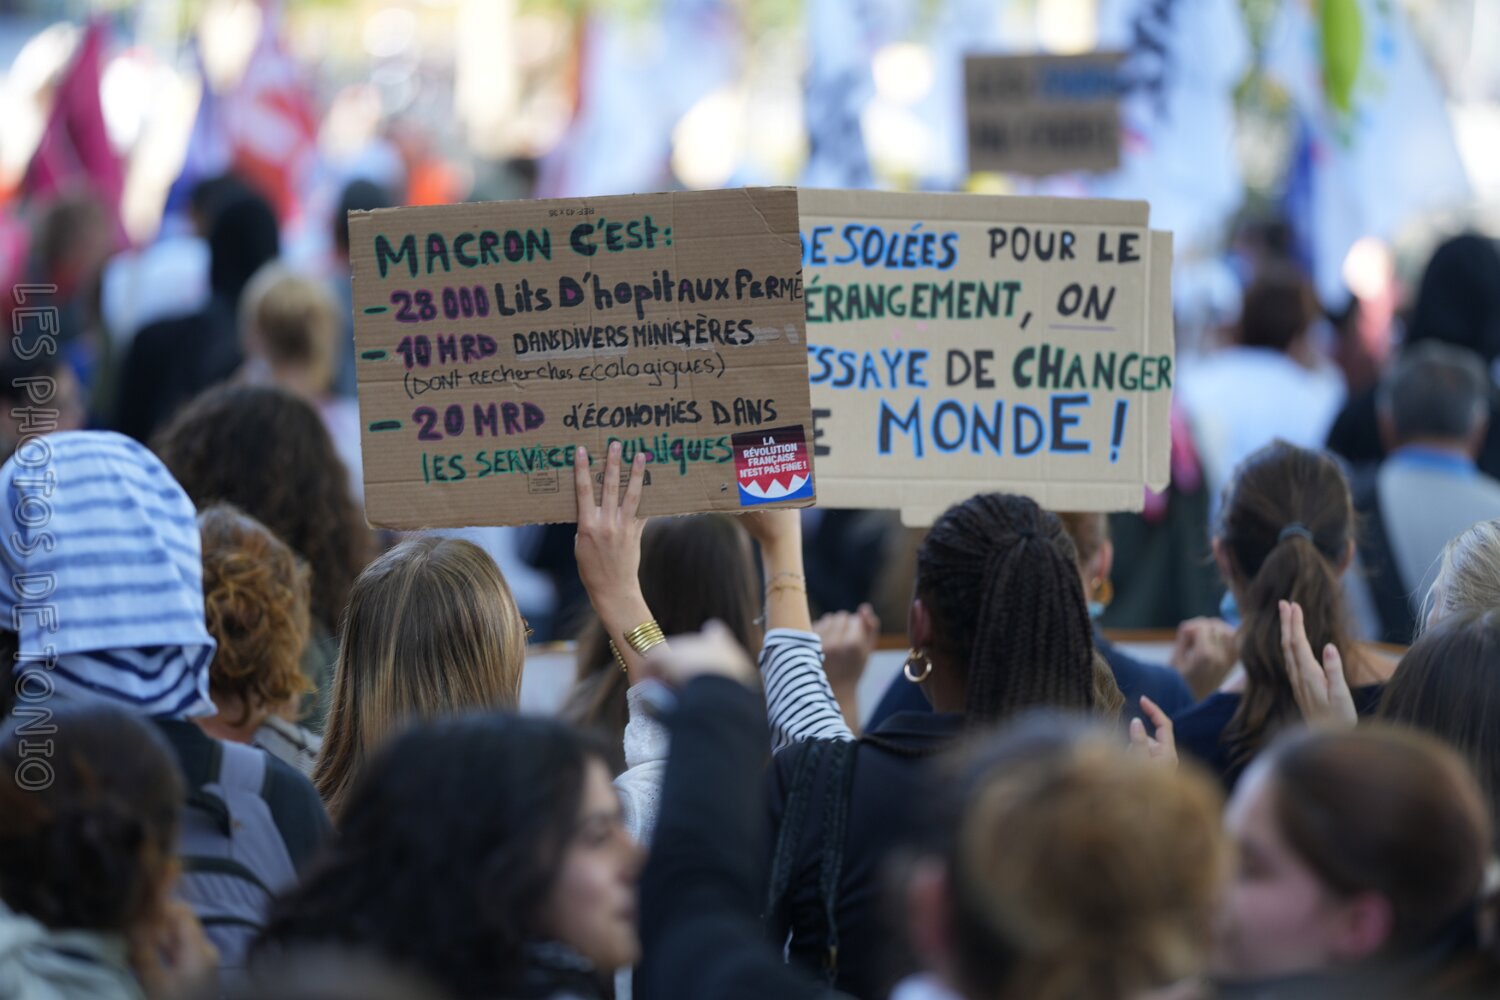 MACRON C'EST:
- 28 000 Lits D'hopitaux FERMÉ
- 10 MRD DANS DIVERS MINISTÈRES
(DONT RECHERCHES ECOLOGIQUES)
- 20 MRD d'ÉCONOMIES DANS
lES SERVICES PUBLIQUES
LA
RÉVOLUTION
FRANÇAISE
N'EST PAS FINIE !
DESOLÉES POUR LE
ÉRANGEMENT, ON
ESSAYE DE CHANGER
E MONDE !
LES PHOTOS DE TONIO